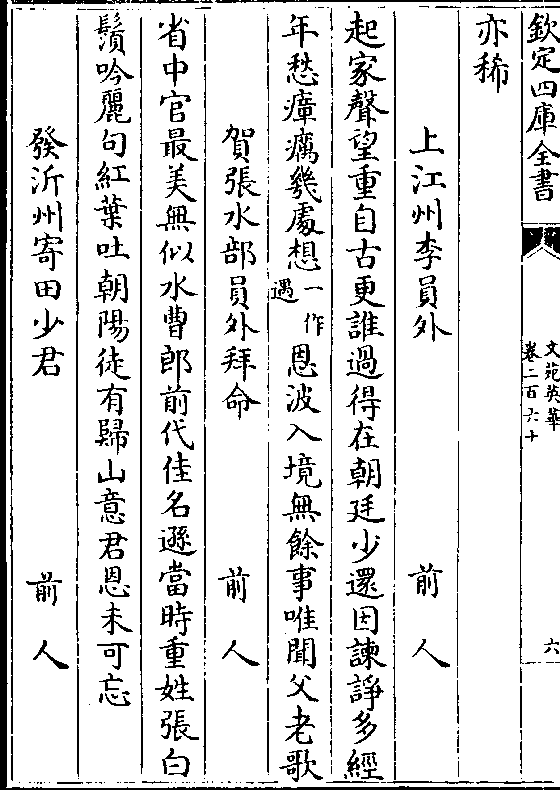 欽定四庫全書
文苑英華
卷二百六十
六
亦稀
上江州李員外　前人
起家聲望重自古更誰過得在朝廷少還因諫諍多經
年愁瘴癘幾處想一作遇恩波入境無餘事唯聞父老歌
賀張水部員外拜命　前人
省中官最美無似水曹郎前代佳名遜當時重姓張白
鬚吟麗句紅葉吐朝陽徒有歸山意君恩未可忘
發沂州寄田少君　前人